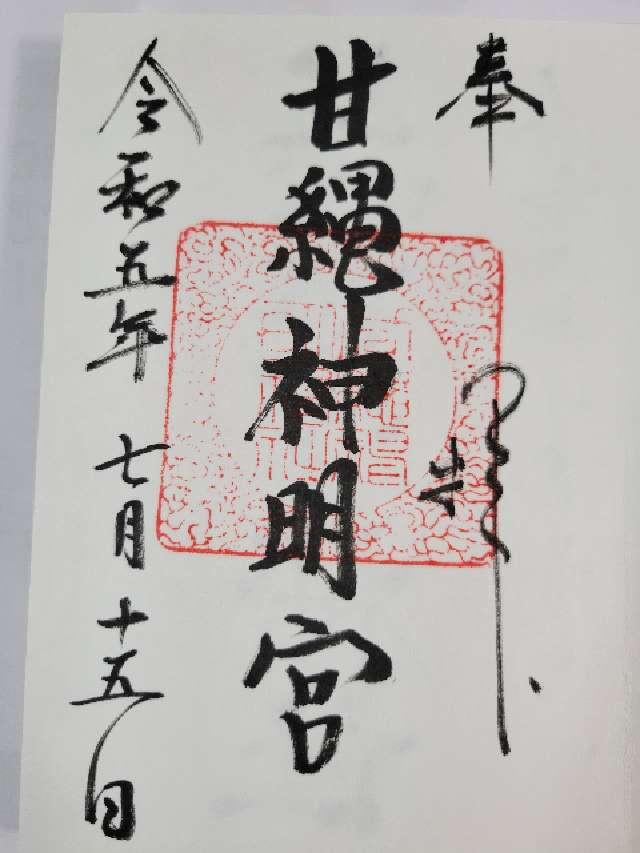 奉拝
甘縄神明宮
令和五年七月十五日